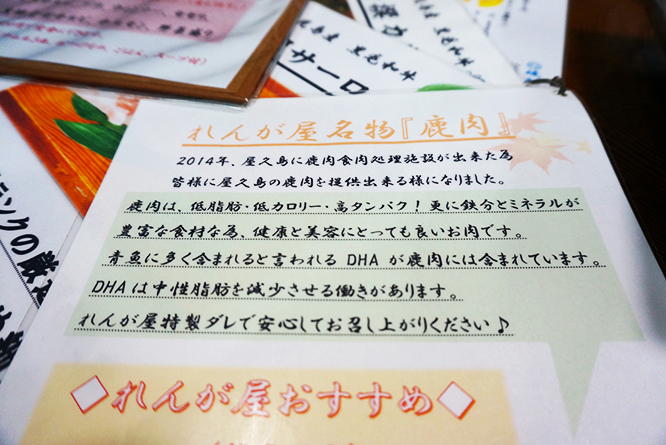 黒毛和牛
サーロ
黒毛和牛
れんが屋名物『鹿肉』
2014年、屋久島に鹿肉食肉処理施設が出来た為
皆様に屋久島の鹿肉を提供出来る様になりました。
鹿肉は、低脂肪・低カロリー・高タンパク！更に鉄分とミネラルが
豊富な食材な為、健康と美容にとっても良いお肉です。
青魚に多く含まれると言われる DHA が鹿肉には含まれています。
DHA は中性脂肪を減少させる働きがあります。
れんが屋特製ダレで安心してお召し上がりください♪
ランクの厳選
◆れんが屋おすすめ◆